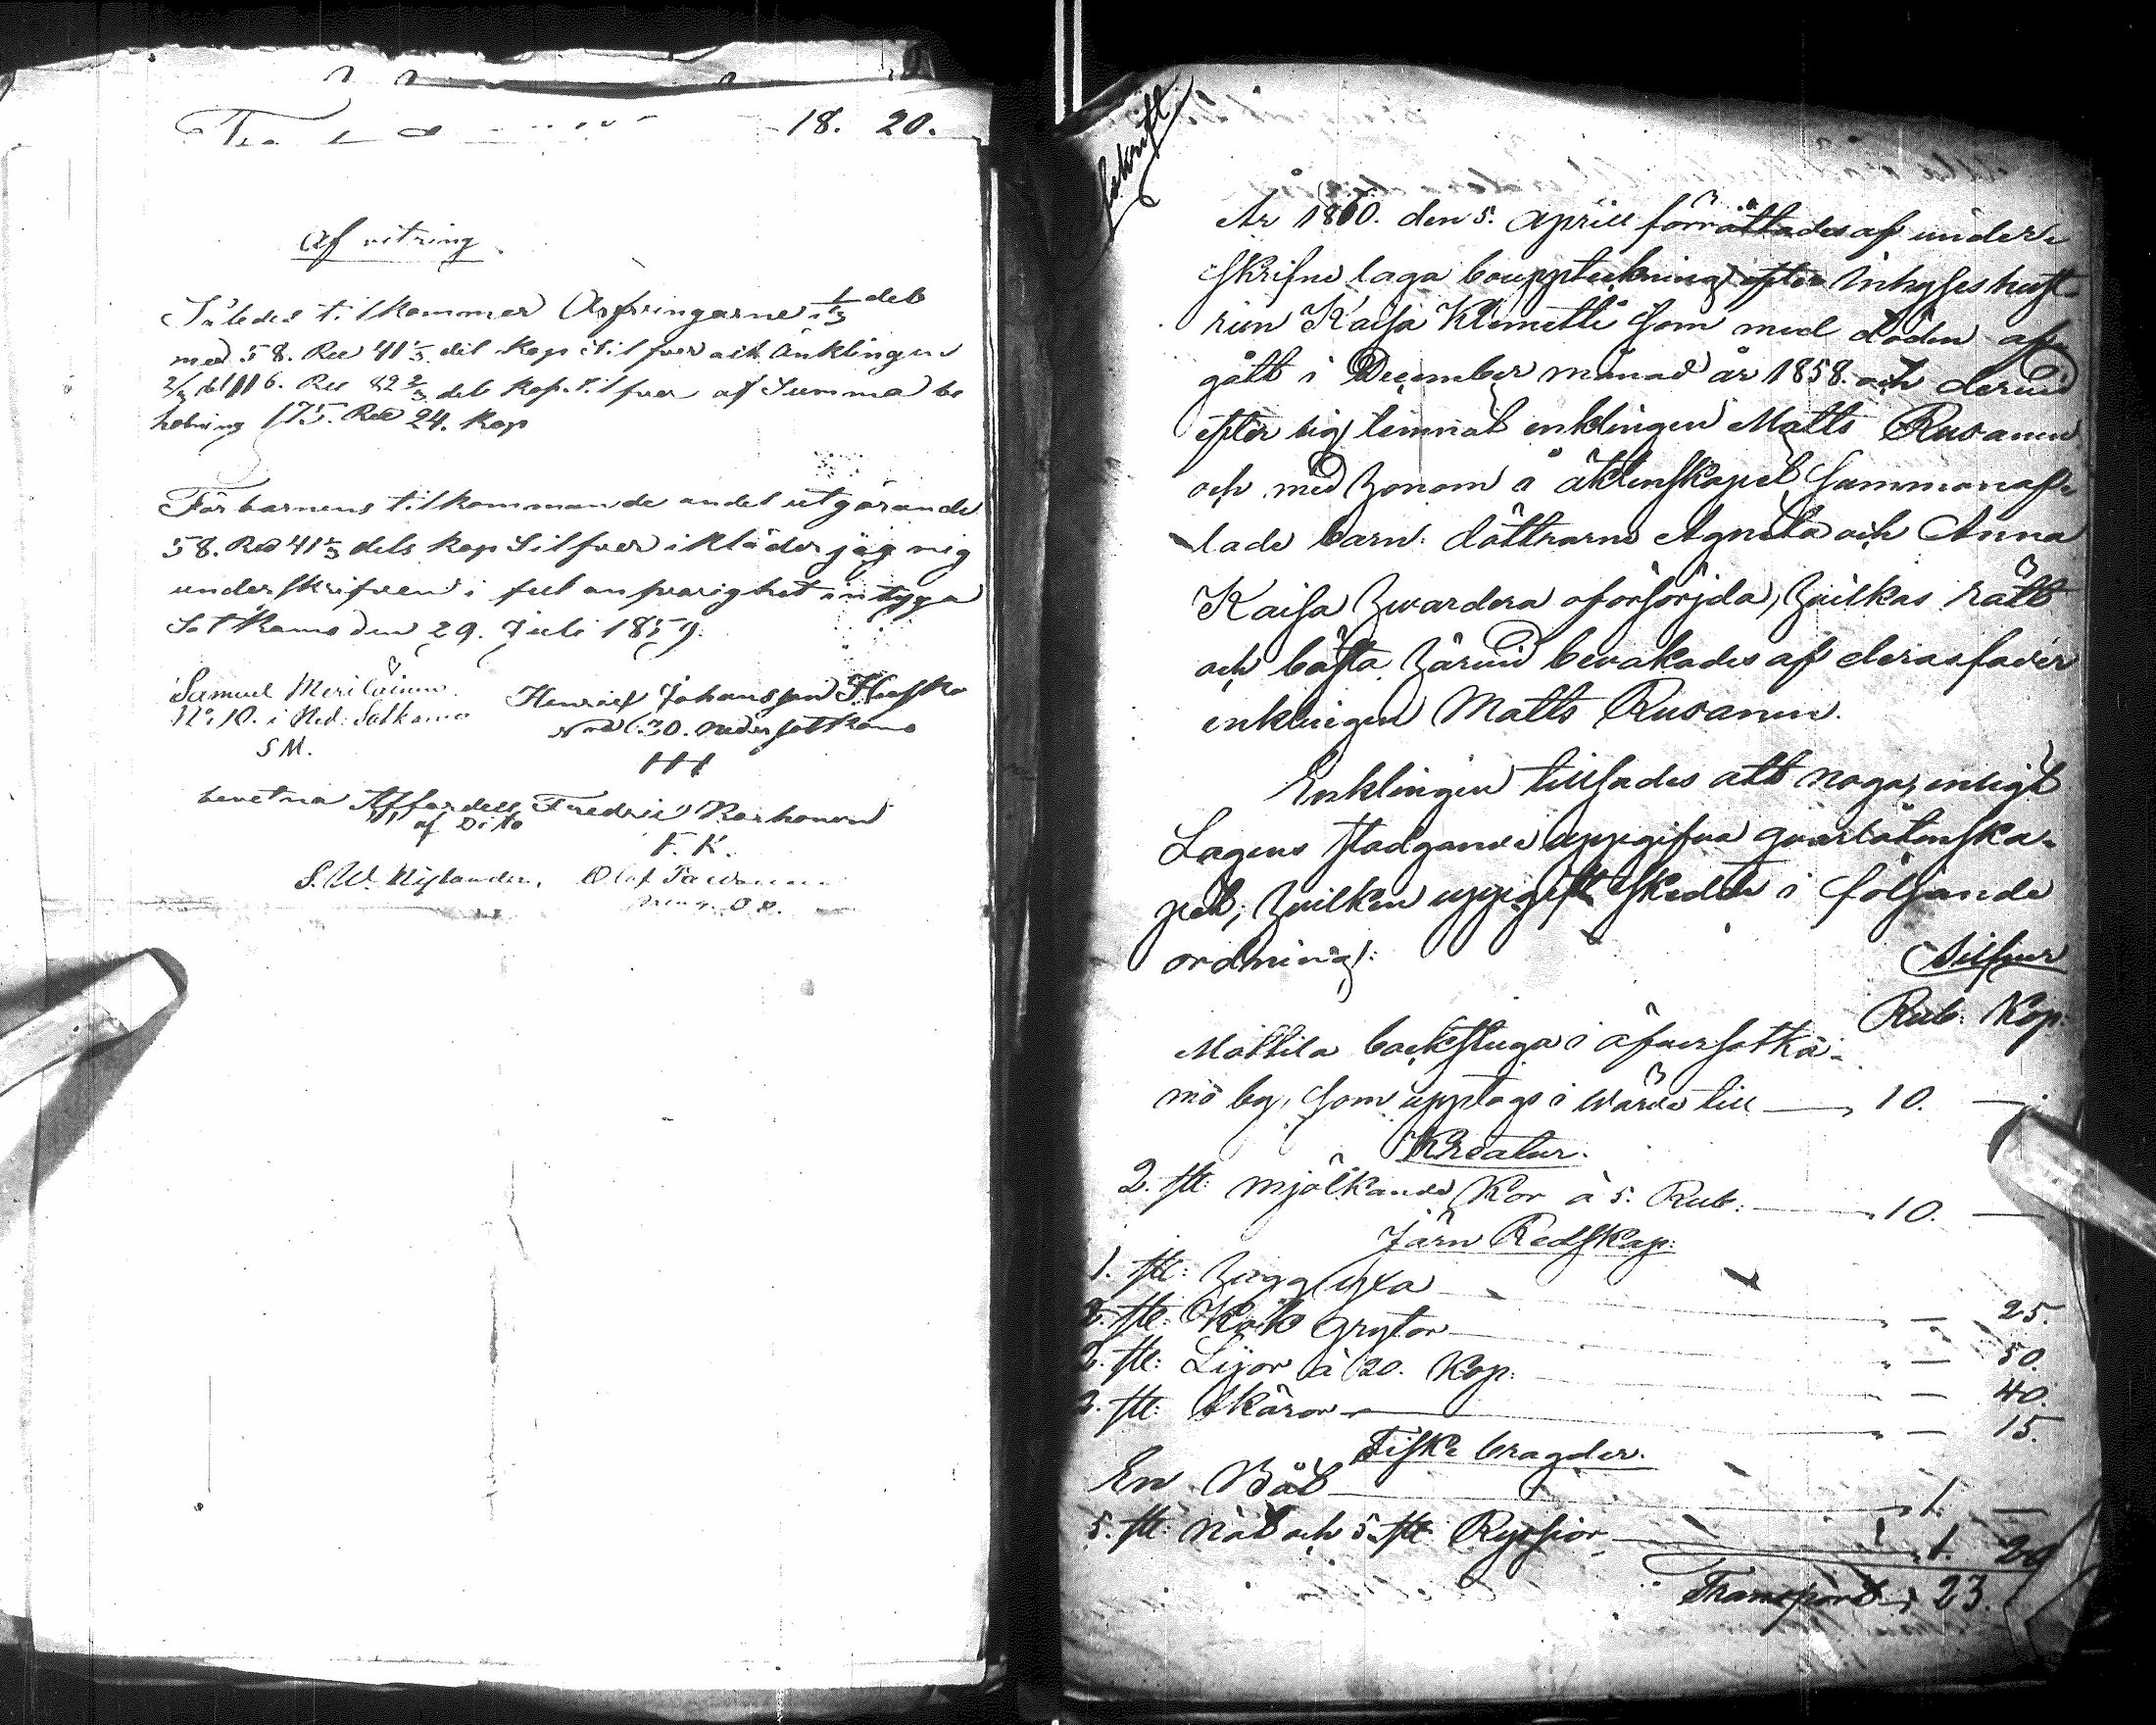 18. 20.
Af vitring
Således tilkommer Arfvingarne 1/3 del
med 58. Rub 41 1/3 del Kop: silfver och Änklingen
2/3 del 116. Rub 82 2/3 del kop. silfver af Summa be
holning 175. Rub 24. Kop
För barnens tilkommande andel utgörande
58. Rub 41 1/3 dels kop Silfver ikläder jag mig
underskrifven i ful ansvarighet intyga
Sotkamo den 29. Juli 1859.
Samuel Meriläinen
No 10. i Ned: Sotkamo
SM.
Henrich Johansson
No 30. neder sotkamo
HH
bevetna
af Dito
Fredric Karhonen
F. K.
S. W. Nylander, Olof
Afskrift
År 1860. den 5. Aprill förrättades af under-
skrifne laga bouppteckning efter Inhyses hust-
run Kaisa Klemetti som med döden af-
gått i December månad år 1858. och dervid
efter sig lemnat enklingen Matts Rusanen
och med honom i äktenskapet sammanaf-
lade barn: döttrarne Agneta och Anna
Kaisa hvardera oförsörjda, hvilkas rätt
och bästa härvid bevakades af deras fader
enklingen Matts Rusanen.
Enklingen tillsades att noga, enligt
Lagens stadgande uppgifva qvarlåtenska-
pet; hvilken uppgift skedde i följande
ordning:
Silfver
Rub. Kop.
Mattila backstuga i öfversotka-
mo by, som upptogs i värde till — 10. —
Kreatur.
2. st: mjölkande Kor à 5. Rub: — 10. —
Järn Redskap:
1. st: hugg yxa — 25.
2. st: Kok grytor — 50.
2. st: Lijor à 20. Kop: — 40.
2. st: skäror — 15.
Fiske bragder.
En Båt — 1. —
5. st: nät och 5. st: Ryssjor — 1. 20
Transport 23.